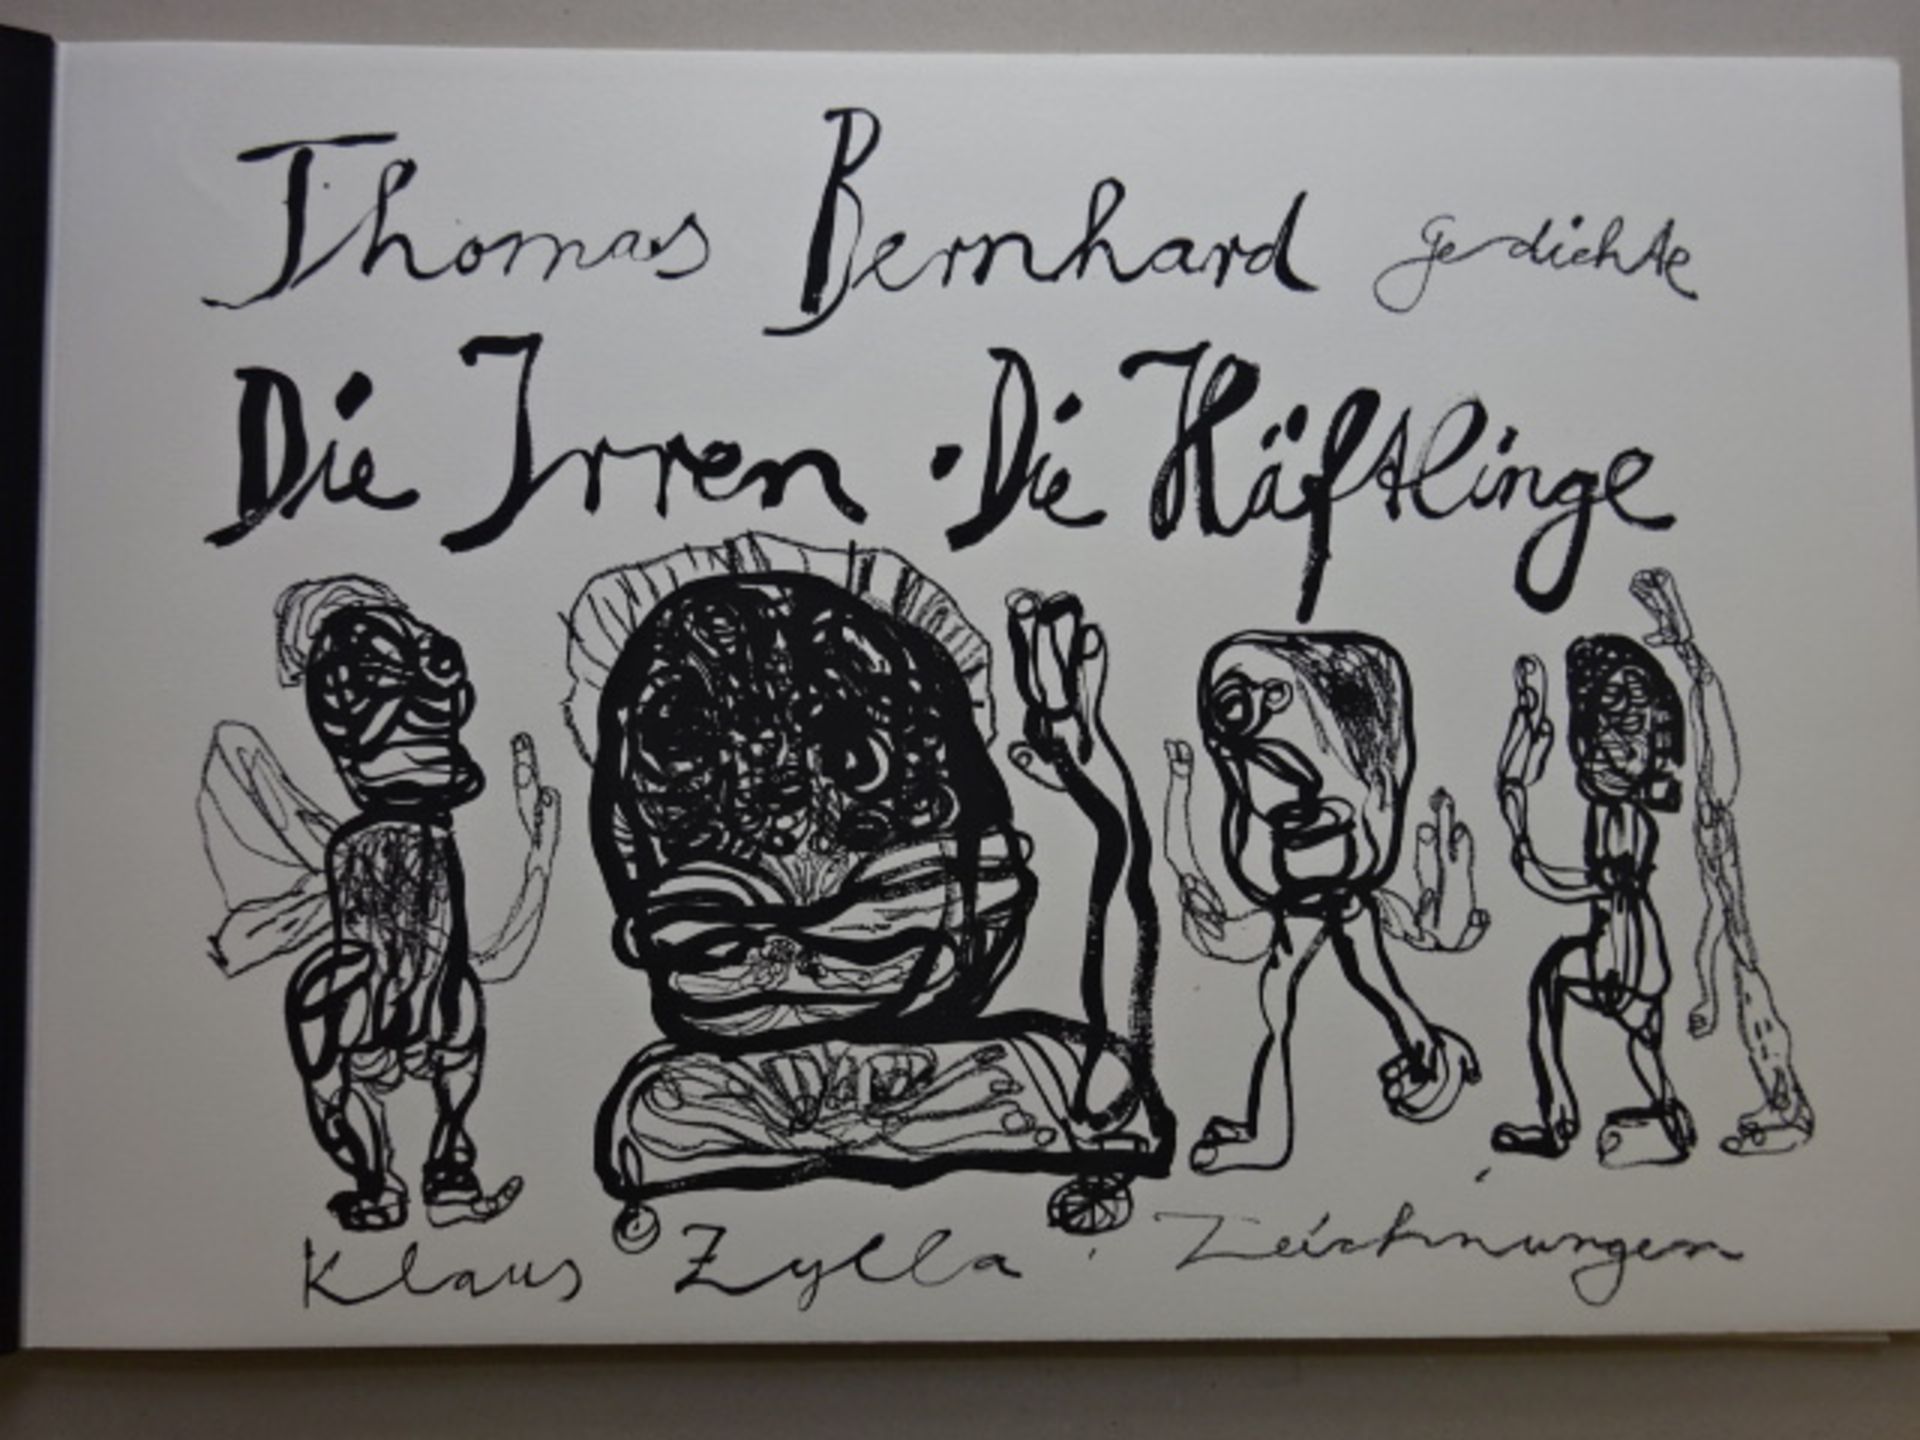 Thomas Bernhard Gedichte
Die Irren · Die Häftlinge
Klaus Zylla · Zeichnungen